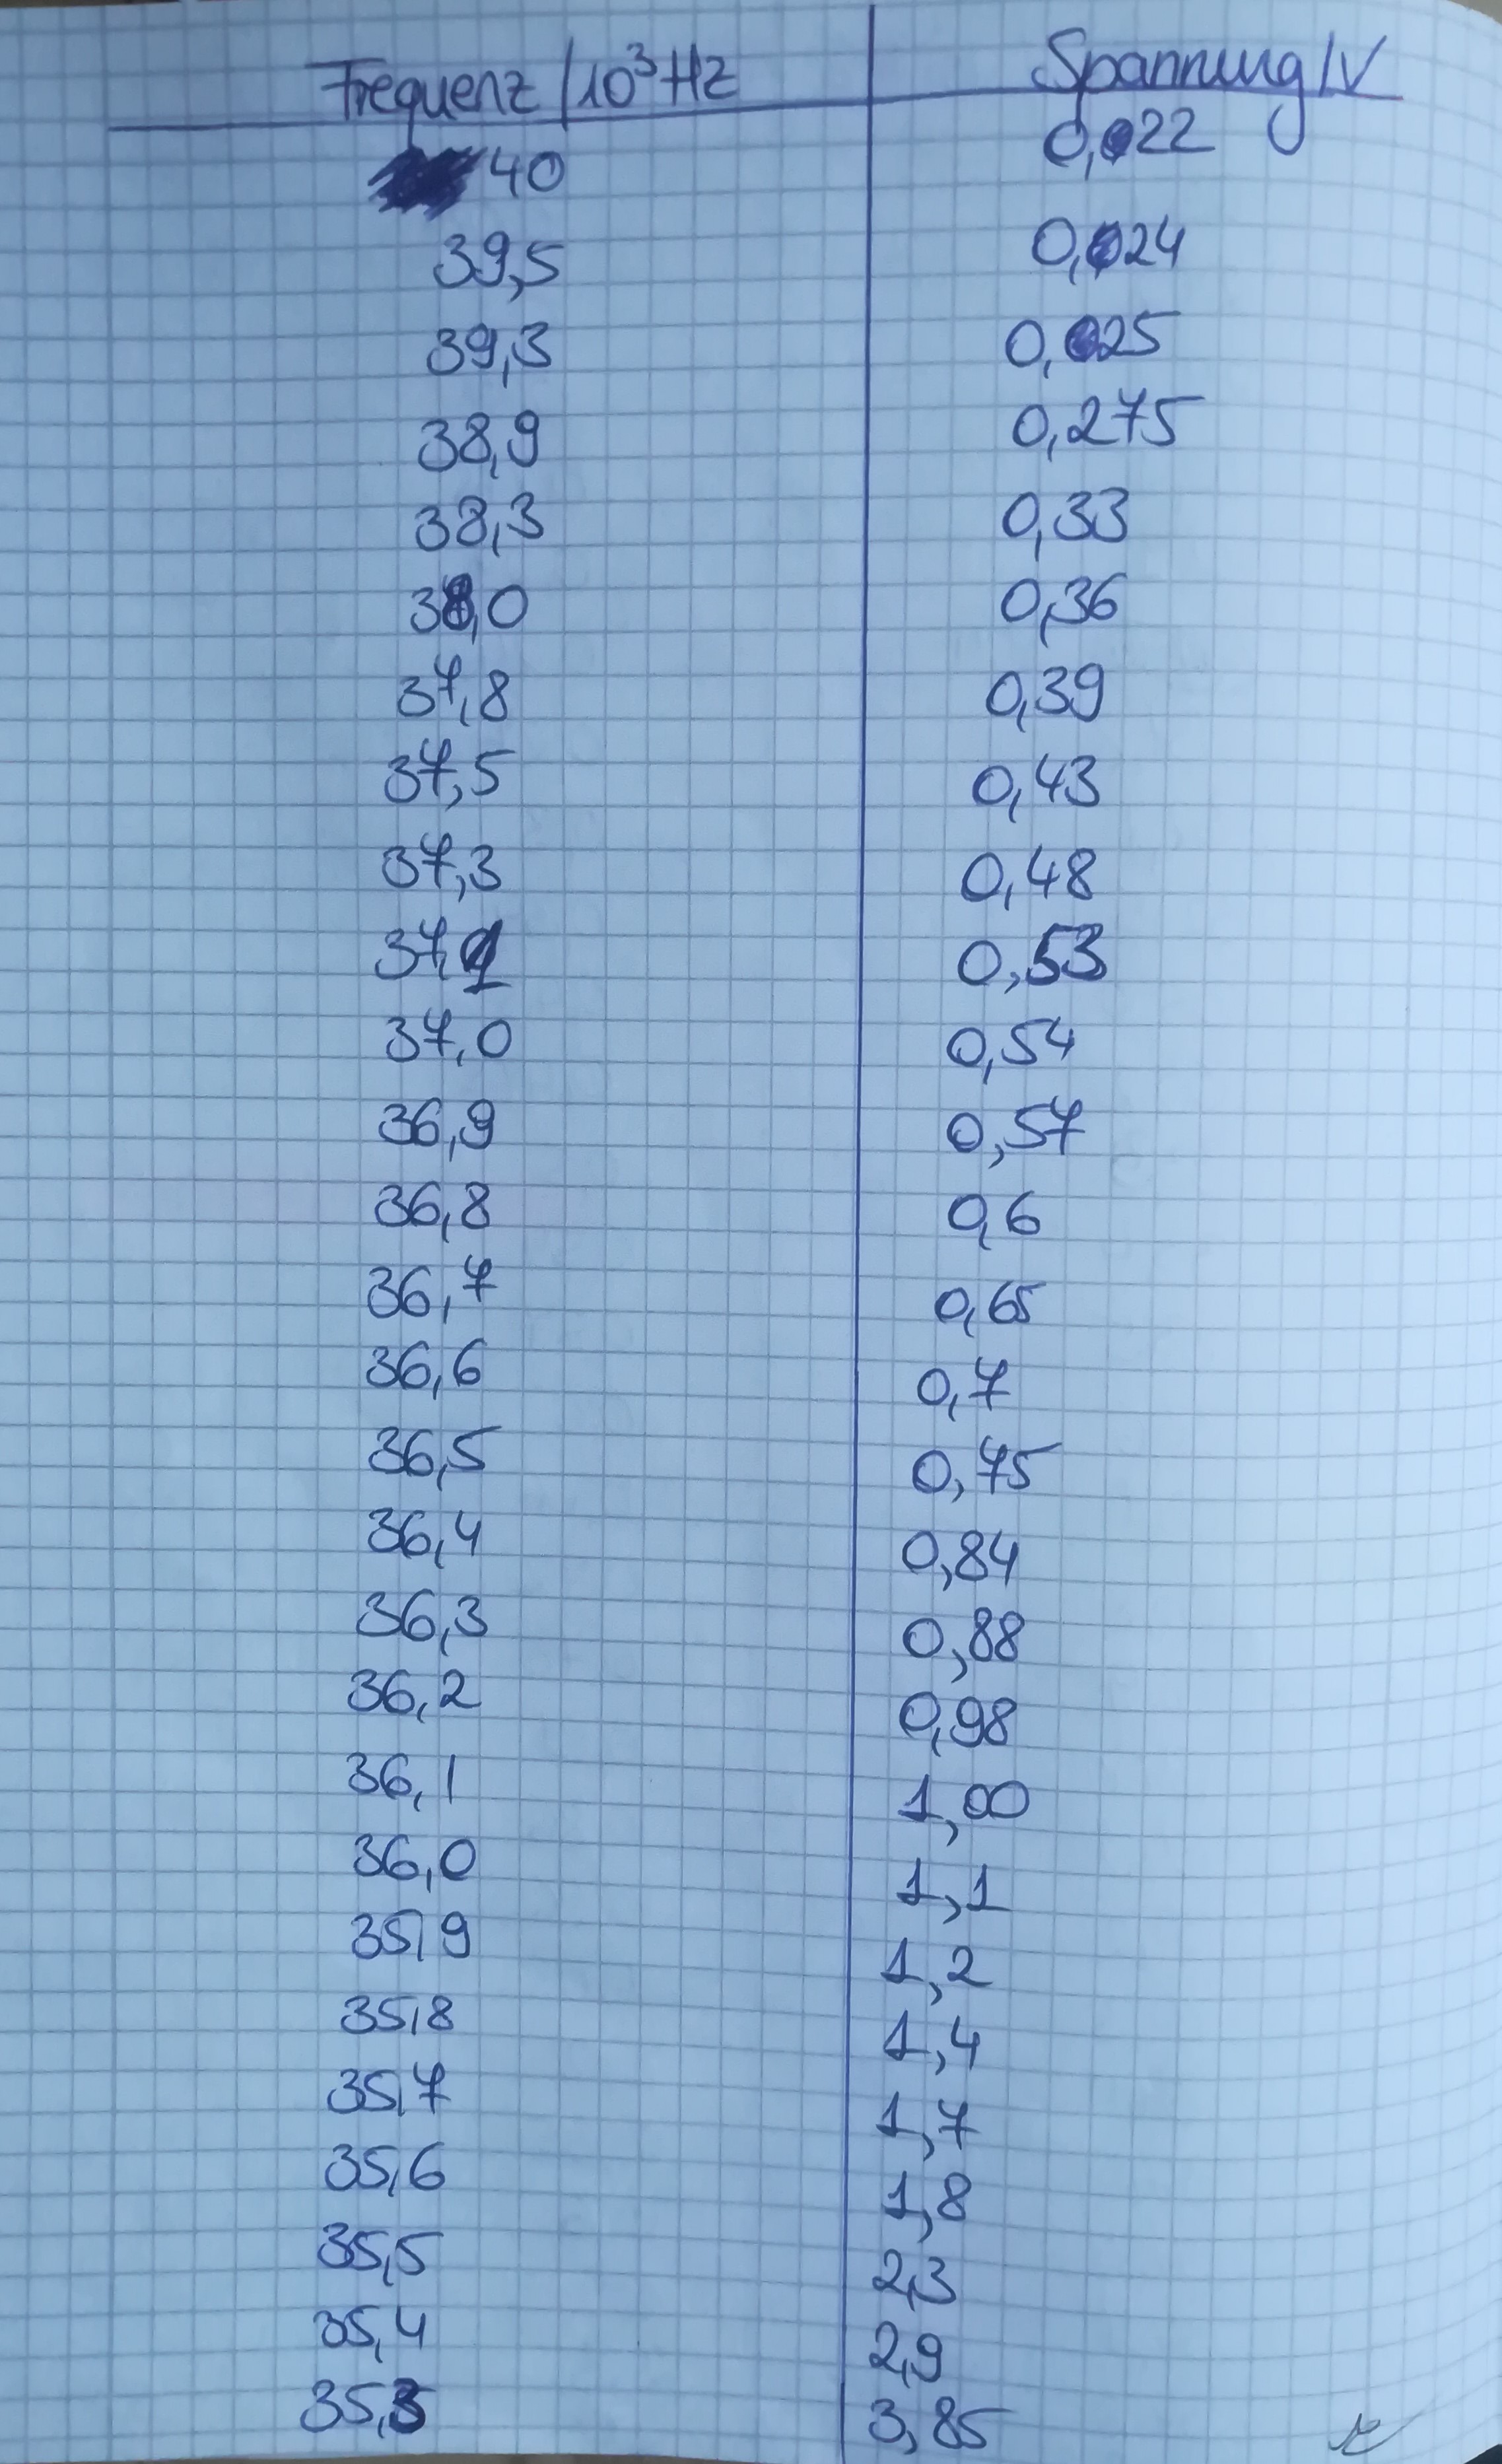 Frequenz /10³Hz Spannung/V
40 0,022
39,5 0,024
39,3 0,025
38,9 0,275
38,3 0,33
38,0 0,36
37,8 0,39
37,5 0,43
37,3 0,48
37,1 0,53
37,0 0,54
36,9 0,57
36,8 0,6
36,7 0,65
36,6 0,7
36,5 0,75
36,4 0,84
36,3 0,88
36,2 0,98
36,1 1,00
36,0 1,1
35,9 1,2
35,8 1,4
35,7 1,7
35,6 1,8
35,5 2,3
35,4 2,9
35,3 3,85